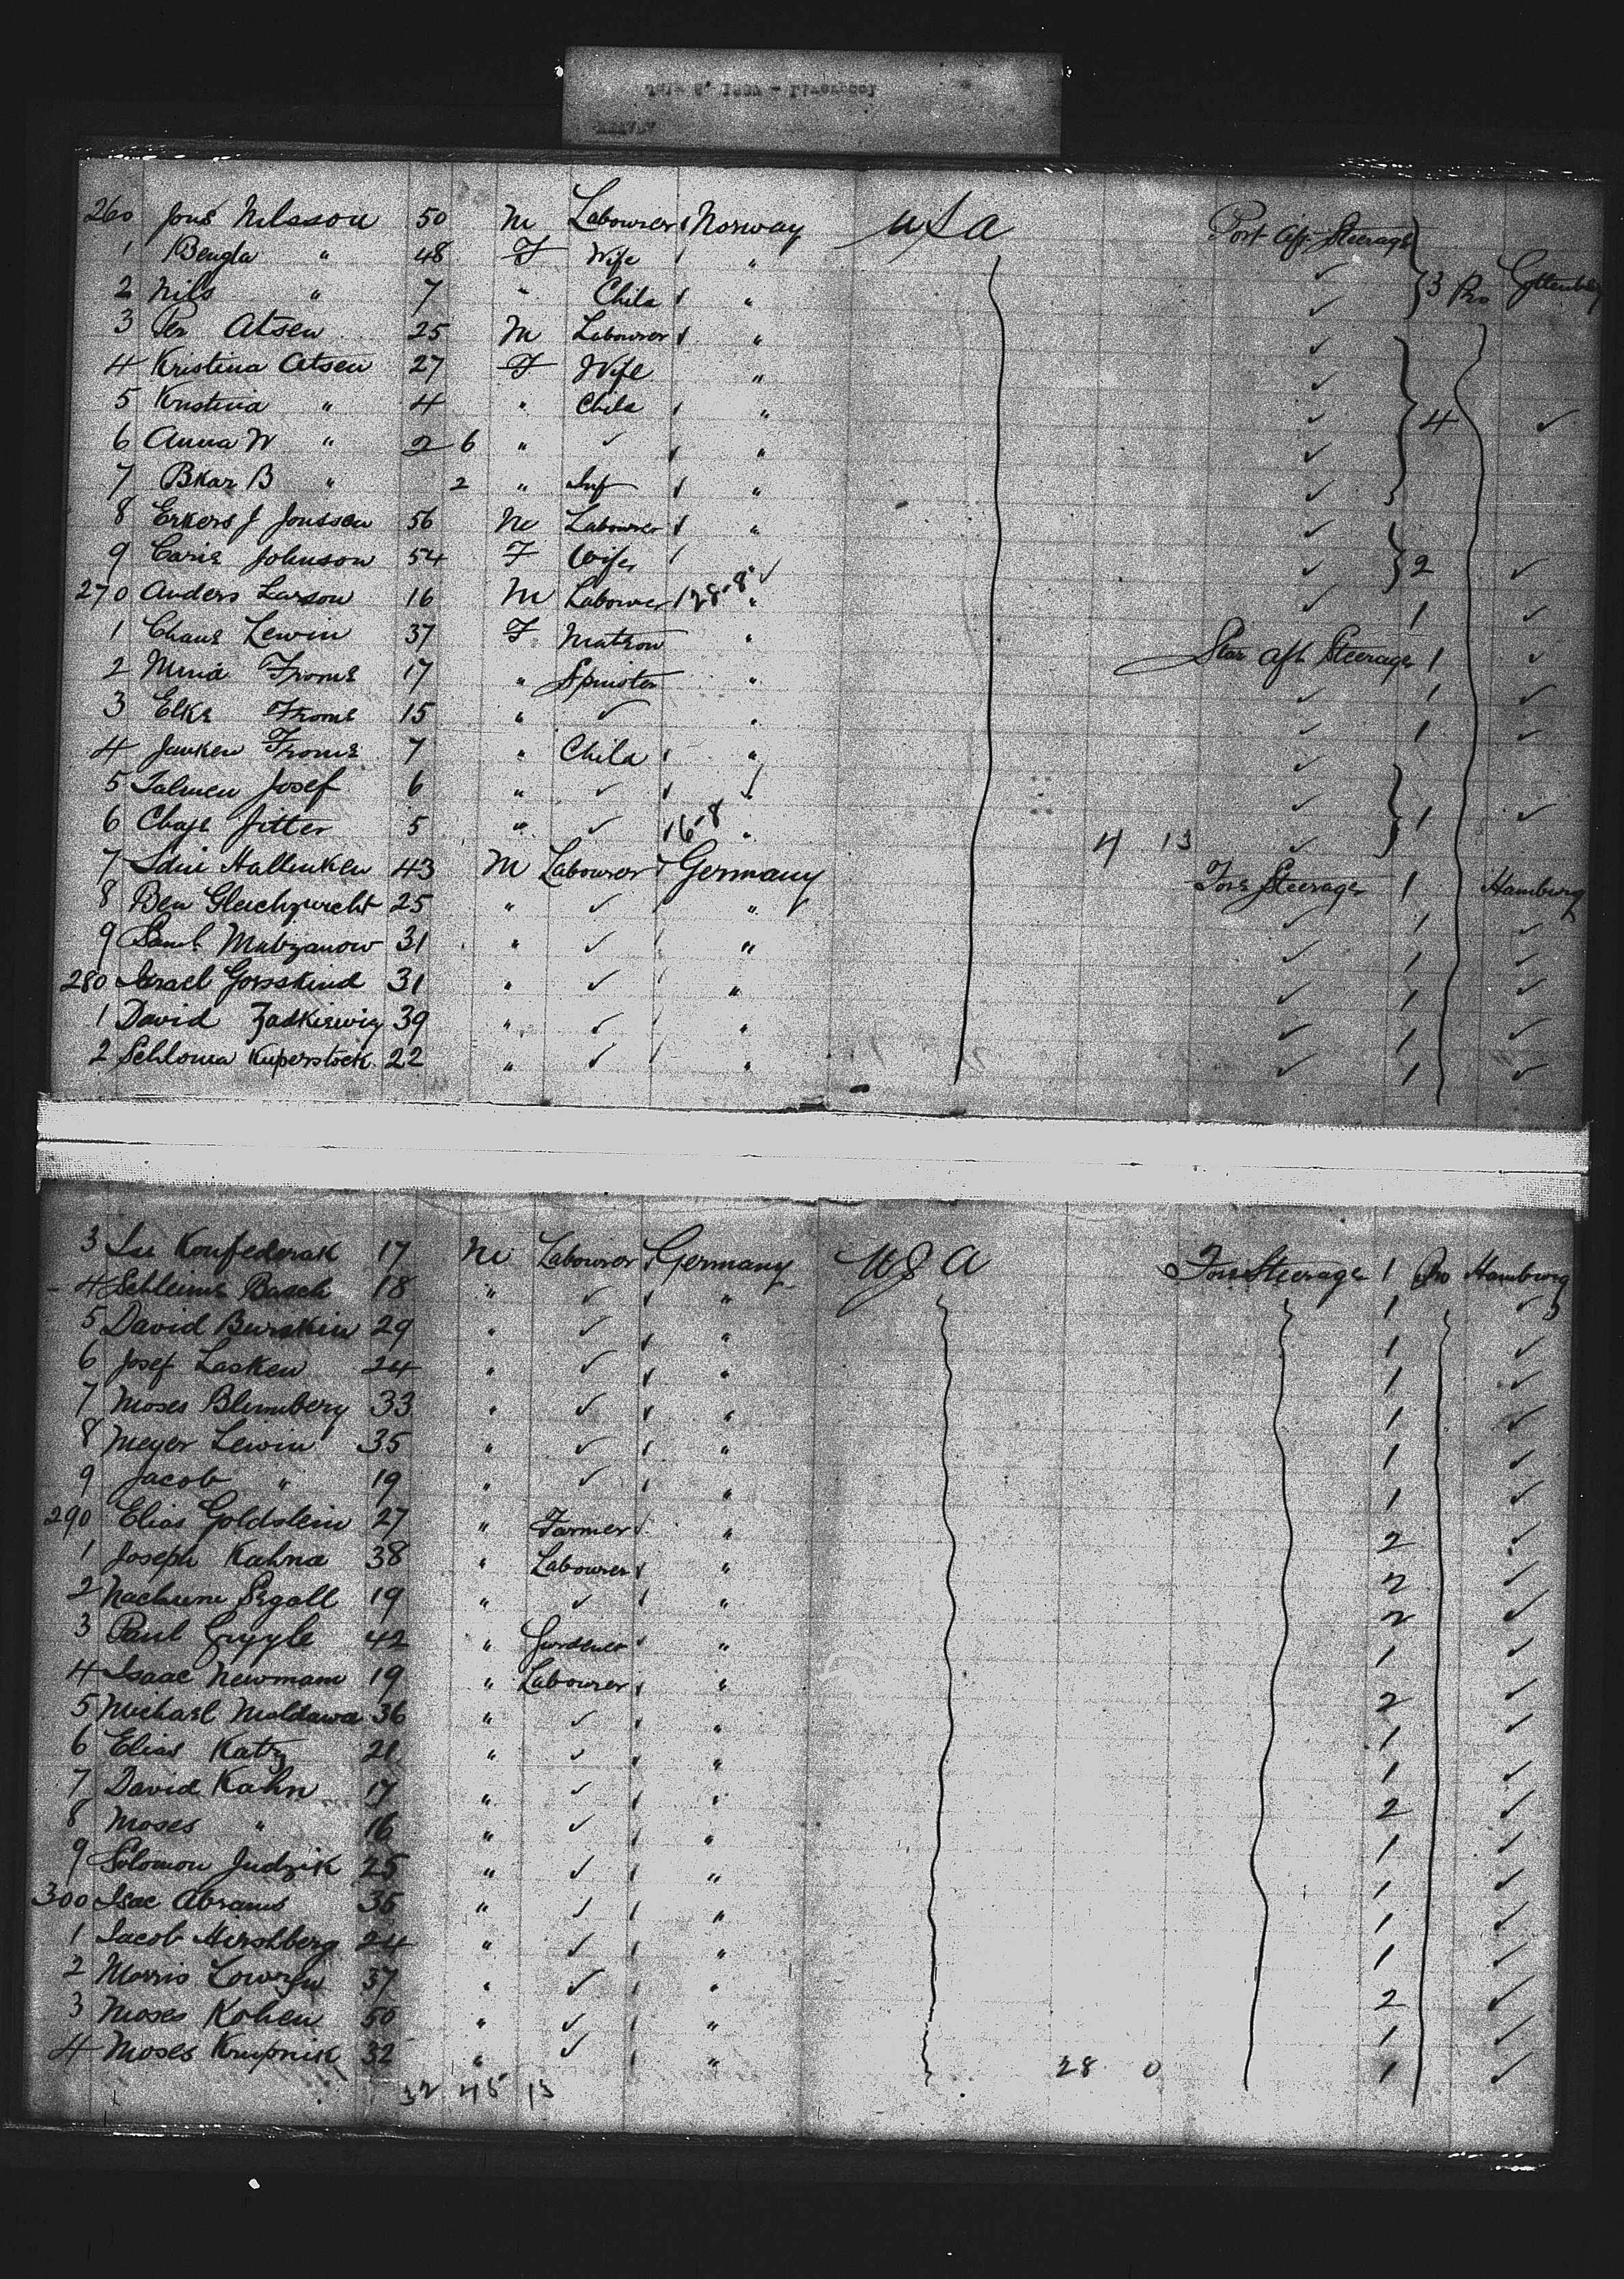 260 Jons Nilsson 50 M Labourer Norway USA Port aft Steerage
1 Bengta " 48 F Wife " ✓ } 3 Pro Gottenburg
2 Nils " 7 " Child " ✓
3 Per Olsen 25 M Labourer " ✓
4 Kristina Olsen 27 F Wife " ✓
5 Kristina " 4 " Child " ✓ } 4 ✓
6 Anna W " 2 6 " ✓ " ✓
7 " 2 " Inf " ✓
8 Jonssen 56 M Labourer " ✓
9 Johnson 54 F Wife ✓ } 2 ✓
270 Anders Larson 16 M Labourer " ✓ 1 ✓
1 Lewin 37 F Matron " Star aft Steerage 1 ✓
2 Froms 17 " Spinster " ✓ 1 ✓
3 Elke Froms 15 " ✓ " ✓ 1 ✓
4 Froms 7 " Child " ✓
5 Josef 6 " ✓ ✓ } 1 ✓
6 5 " ✓ 16-8 " 4 13 ✓
7 43 M Labourer Germany Fore Steerage 1 Hamburg
8 Ben 25 " ✓ " ✓ 1 ✓
9 Saml 31 " ✓ " ✓ 1 ✓
280 Israel 31 " ✓ " ✓ 1 ✓
1 David 39 " ✓ " ✓ 1 ✓
2 Schloma Kuperstock 22 " ✓ " ✓ 1 ✓
3 Konfederak 17 M Labourer Germany USA Fore Steerage 1 Pro Hamburg
4 Basch 18 " ✓ " 1 ✓
5 David Burskin 29 " ✓ " 1 ✓
6 Josef Lasken 24 " ✓ " 1 ✓
7 Moses Blumberg 33 " ✓ " 1 ✓
8 Meyer Lewin 35 " ✓ " 1 ✓
9 Jacob " 19 " ✓ " 1 ✓
290 Elias Goldstein 27 " Farmer " 2 ✓
1 Joseph Kahna 38 " Labourer " 2 ✓
2 Nachum Segall 19 " ✓ " 2 ✓
3 Paul 42 " Gardener " 1 ✓
4 Isaac Newmann 19 " Labourer " 2 ✓
5 Michael Moldawa 36 " ✓ " 1 ✓
6 Elias Katz 21 " ✓ " 1 ✓
7 David Kahn 17 " ✓ " 2 ✓
8 Moses " 16 " ✓ " 1 ✓
9 Solomon Judzik 25 " ✓ " 1 ✓
300 Isac Abrams 35 " ✓ " 1 ✓
1 Jacob Hirshberg 24 " ✓ " 1 ✓
2 Morris 37 " ✓ " 2 ✓
3 Moses Kohen 50 " ✓ " 1 ✓
4 Moses Krupnik 32 " ✓ " 28 0 1 ✓
32 45 13